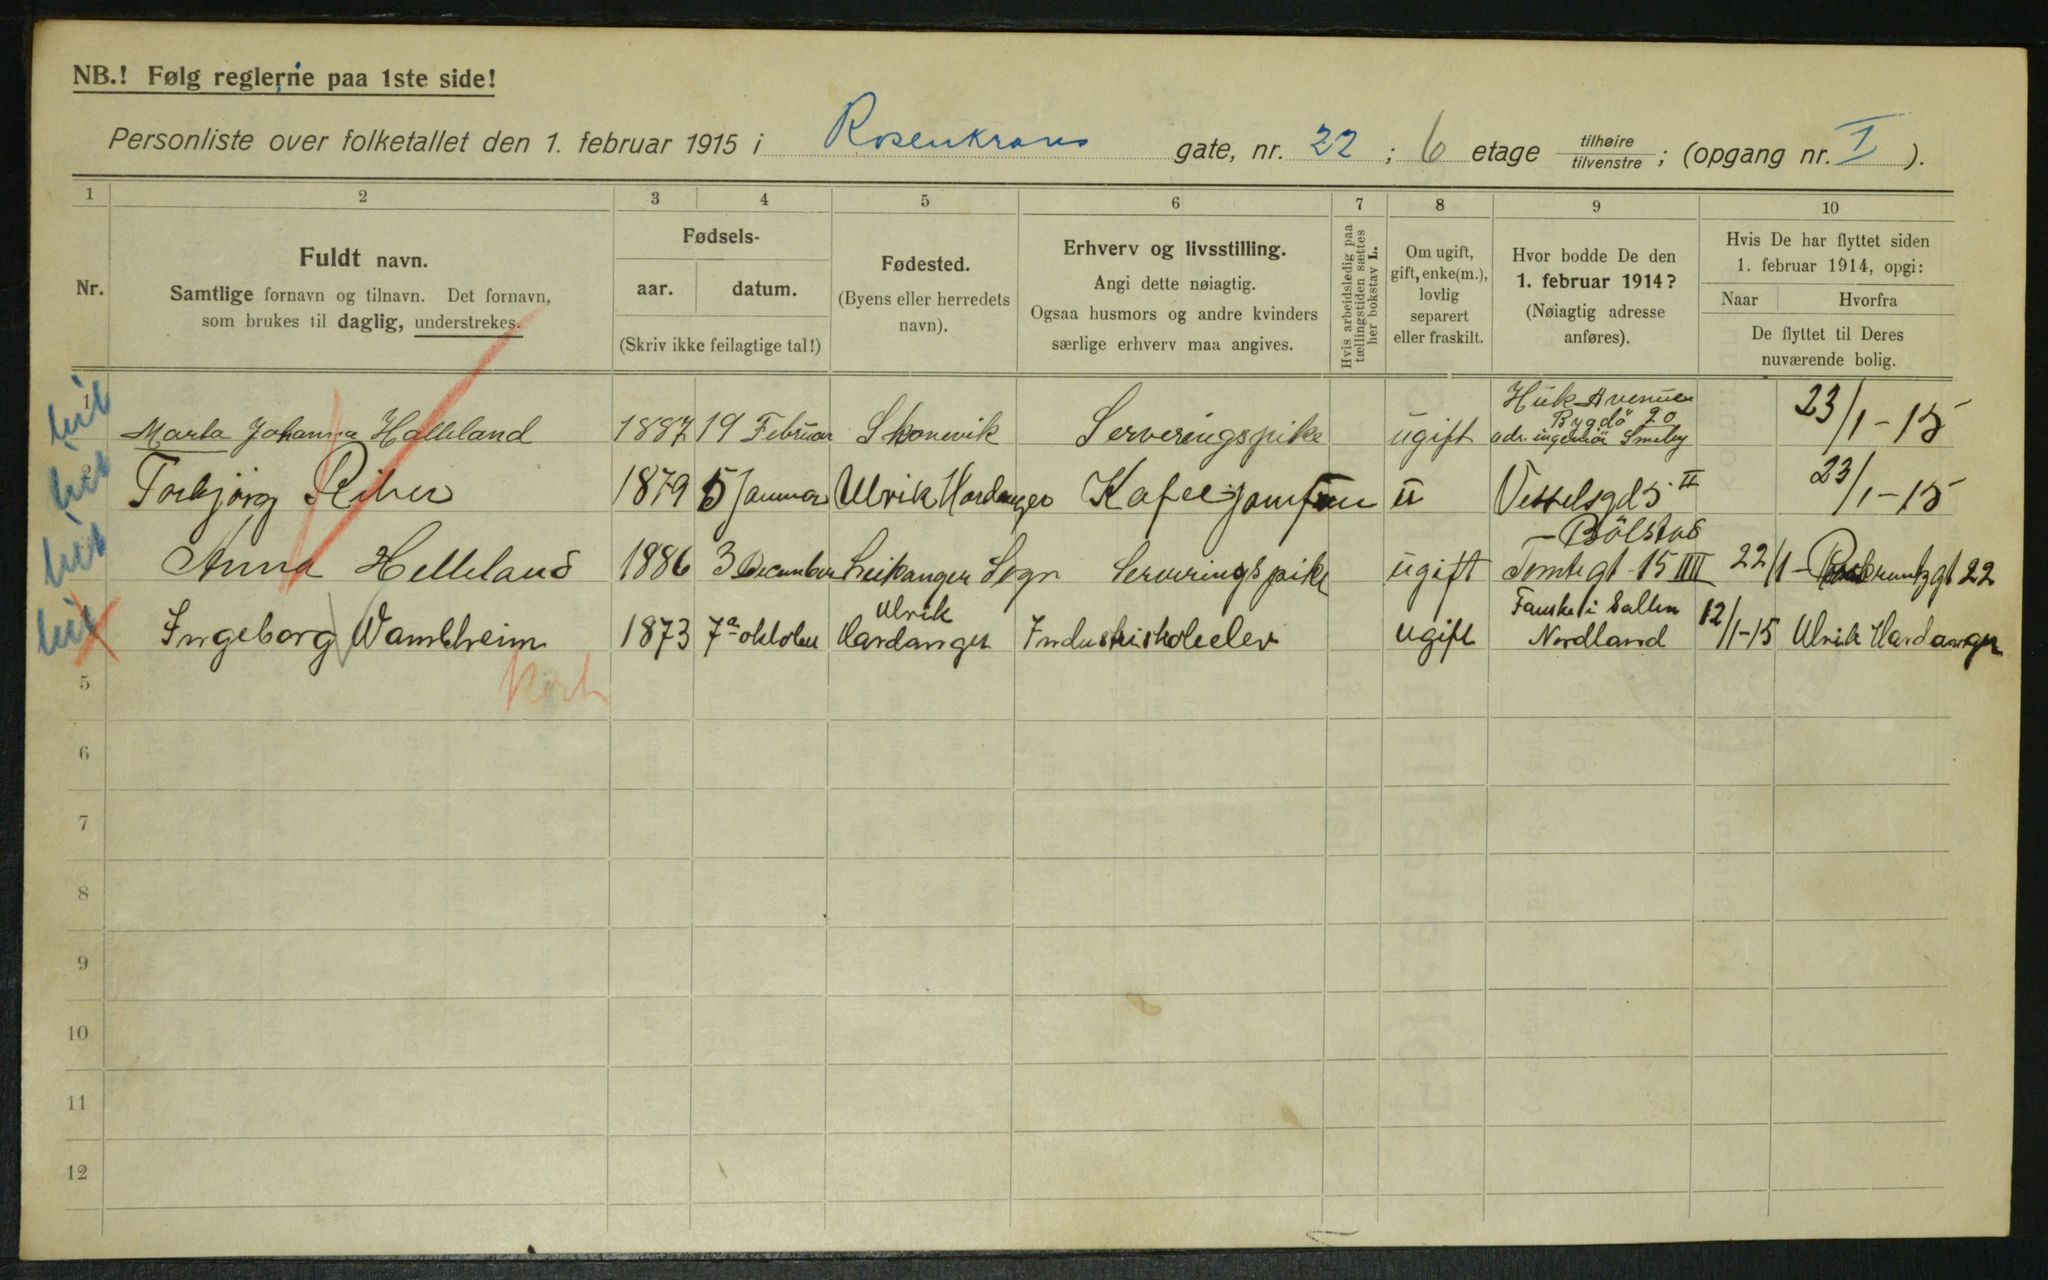 NB.! Følg reglerne paa 1ste side!
Personliste over folketallet den 1. februar 1915 i Rosenkrans gate, nr. 22 ; 6 etage tilhøire tilvenstre ; (opgang nr. I ).
1 2 3 4 5 6 7 8 9 10
Nr.
Fuldt navn.
Samtlige fornavn og tilnavn. Det fornavn,
som brukes til daglig, understrekes.
Fødsels-
aar. datum.
(Skriv ikke feilagtige tal!)
Fødested.
(Byens eller herredets
navn).
Erhverv og livsstilling.
Angi dette nøiagtig.
Ogsaa husmors og andre kvinders
særlige erhverv maa angives.
Hvis arbeidsledig paa
tællingstiden sættes
her bokstav L.
Om ugift,
gift, enke(m.),
lovlig
separert
eller fraskilt.
Hvor bodde De den
1. februar 1914?
(Nøiagtig adresse
anføres).
Hvis De har flyttet siden
1. februar 1914, opgi:
Naar Hvorfra
De flyttet til Deres
nuværende bolig.
Huk Avenuen
Bygdö 20
1 Marta Johanna Halleland 1887 19 Februar Skonevik Serveringspike ugift adr. ingeniör Smeby 23/1-15
2 Torbjörg Riber 1879 5 Januar Ulvik Hardanger Kafeejomfru u Vesselsgd 5 II 23/1-15
Bölstad
Anna Helleland 1886 3 December Leikanger Sogn Serveringspike ugift Tomtegt 15 IIII 22/1 22
Ingeborg Wambheim 1873 7de oktober Ulvik Hardanger Industriskoleelev ugift Fauske i Salten
Nordland 12/1-15 Ulvik Hardanger
5
6
7
8
9
10
11
12